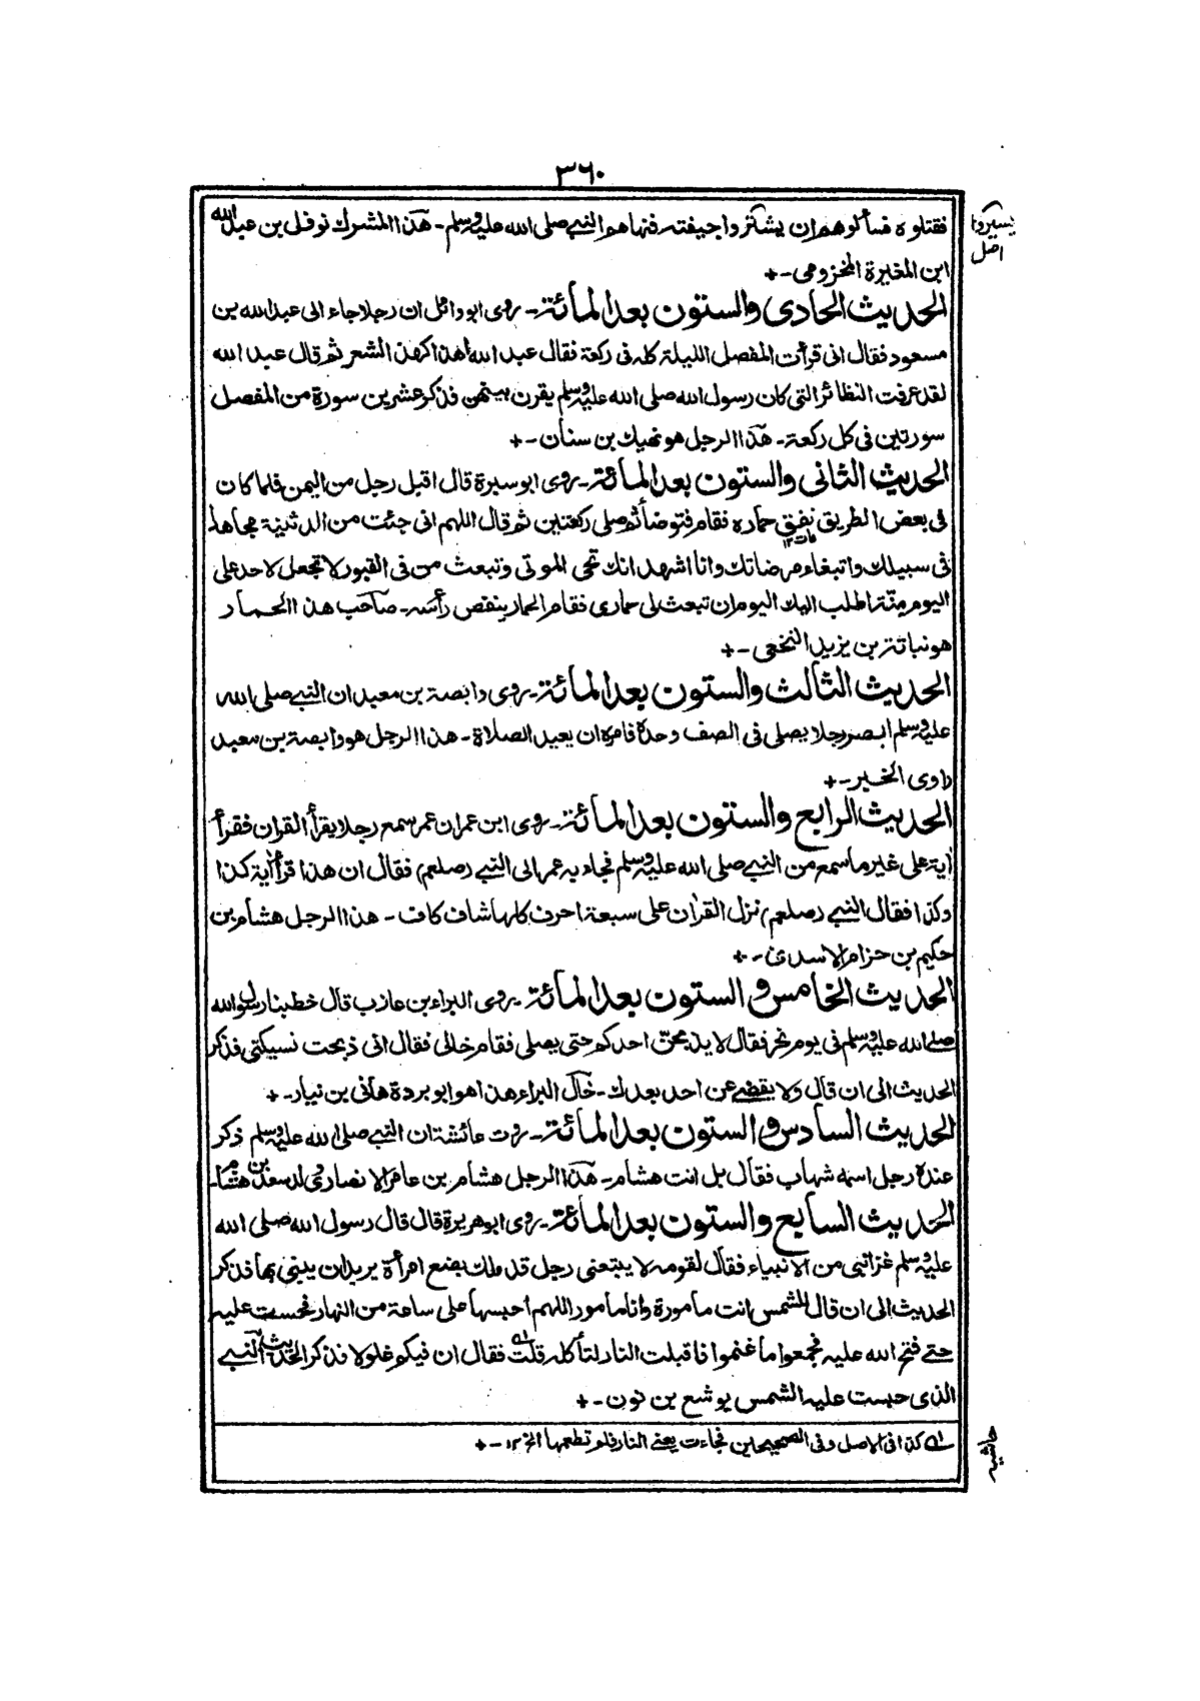 ٣٦٠
فقتلوه فسألوهم ان يشتروا جيفته فنهاهم النبي صلى الله عليه وسلم ـ هذا المشرك نوفل بن عبد الله
يسيروا
اصل
ابن المغيرة المخزومى ـ +
الحديث الحادى والستون بعد المائة ـ روى ابو وائل ان رجلا جاء الى عبد الله بن
مسعود فقال انى قرأت المفصل الليلة كله فى ركعة فقال عبد الله أهذا كهذ الشعر ثم قال عبد الله
لقد عرفت النظائر التى كان رسول الله صلى الله عليه وسلم يقرن بينهن فذكر عشرين سورة من المفصل
سورتين فى كل ركعة ـ هذا الرجل هو نهيك بن سنان ـ +
الحديث الثانى والستون بعد المائة ـ روى ابو سبرة قال اقبل رجل من اليمن فلما كان
فى بعض الطريق نفق حماره فقام فتوضأ ثم صلى ركعتين ثم قال اللهم انى جئت من الدثنية مجاهدا
مات ١٢
فى سبيلك وابتغاء مرضاتك وانا اشهد انك تحى الموتى وتبعث من فى القبور لا تجعل لاحد على
اليوم منة اطلب اليك اليوم ان تبعث لى حمارى فقام الحمار ينفض رأسه ـ صاحب هذا الحمار
هو نباتة بن يزيد النخعى ـ +
الحديث الثالث والستون بعد المائة ـ روى وابصة بن معبد ان النبي صلى الله
عليه وسلم ابصر رجلا يصلى فى الصف وحده فامره ان يعيد الصلاة ـ هذا الرجل هو وابصة بن معبد
راوى الخبر ـ +
الحديث الرابع والستون بعد المائة ـ روى ابن عمر ان عمر سمع رجلا يقرأ القران فقرأ
اٰية على غير ما سمع من النبي صلى الله عليه وسلم فجاء به عمر الى النبي (صلعم) فقال ان هذا قرأ اٰية كذا
وكذا فقال النبي (صلعم) نزل القراٰن على سبعة احرف كلها شاف كاف ـ هذا الرجل هشام بن
حكيم بن حزام الاسدى ـ +
الحديث الخامس والستون بعد المائة ـ روى البراء بن عازب قال خطبنا رسول الله
صلى الله عليه وسلم فى يوم نحر فقال لا يذبحن احدكم حتى يصلى فقام خالى فقال انى ذبحت نسيكتى فذكر
الحديث الى ان قال ولا يقضى عن احد بعدك ـ خال البراء هذا هو ابو بردة هانى بن نيار ـ +
الحديث السادس والستون بعد المائة ـ روت عائشة ان النبي صلى الله عليه وسلم ذكر
عنده رجل اسمه شهاب فقال بل انت هشام ـ هذا الرجل هشام بن عامر الانصارى والد سعد بن هشام ـ
الحديث السابع والستون بعد المائة ـ روى ابو هريرة قال قال رسول الله صلى الله
عليه وسلم غزا نبى من الانبياء فقال لقومه لا يتبعنى رجل قد ملك بضع امرأة يريد ان يبنى بها فذكر
الحديث الى ان قال للشمس انت مأمورة وانا مأمور اللهم أحبسها على ساعة من النهار فحبست عليه
حتى فتح الله عليه فجمعوا ما غنموا فاقبلت النار لتأكله قلت فقال ان فيكم غلولا فذكر الحديث النبي
الذى حبست عليه الشمس يوشع بن نون ـ +
كذا فى الاصل وفى الصحيحين فجاءت يعنى النار فلم تطعمها الخ ١٢ ـ +
حاشيه